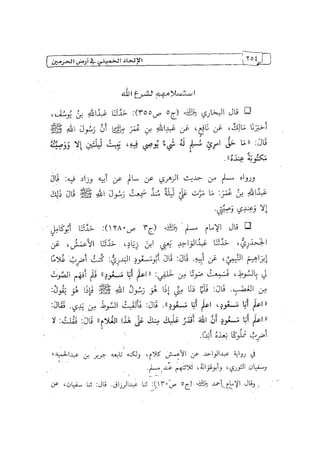 ٢٥٤ الإلحاد الخميني في أرض الحرمين
استسلامهم لشرع الله
قال البخاري (ج٥ ص٣٥٥): حَدَّثَنَا عَبْدُاللهِ بنُ يُوسُفَ،
أَخبَرَنَا مَالِكٌ، عَن نَافِعٍ، عَن عَبدِاللهِ بنِ عُمَرَ أَنَّ رَسُولَ اللهِ ﷺ
قَالَ: «مَا حَقُّ امرِئٍ مُسلِمٍ لَهُ شَيءٌ يُوصِي فِيهِ، يَبِيتُ لَيلَتَينِ إلا وَوَصِيَّتُهُ
مَكتُوبَةٌ عِندَهُ».
ورواه مسلم من حديث الزهري عن سالم عن أبيه وزاد فيه: قَالَ
عَبدُاللهِ بنُ عُمَرَ: مَا مَرَّت عَلَيَّ لَيلَةٌ مُنذُ سَمِعتُ رَسُولَ اللهِ ﷺ قَالَ ذَلِكَ
إلا وَعِندِي وَصِيَّتِي.
قال الإمام مسلم (ج٣ ص١٢٨٠): حَدَّثَنَا أَبُوكَامِلٍ
الجَحدَرِيُّ، حَدَّثَنَا عَبدُالوَاحِدِ يَعنِي ابنَ زِيَادٍ، حَدَّثَنَا الأَعمَشُ، عَن
إِبرَاهِيمَ التَّيمِيِّ، عَن أَبِيهِ. قَالَ: قَالَ أَبُومَسعُودٍ البَدرِيُّ: كُنتُ أَضرِبُ غُلامًا
لِي بِالسَّوطِ، فَسَمِعتُ صَوتًا مِن خَلفِي: «اعلَم أَبَا مَسعُودٍ» فَلَم أَفهَمِ الصَّوتَ
مِنَ الغَضَبِ. قَالَ: فَلَمَّا دَنَا مِنِّي إِذَا هُوَ رَسُولُ اللهِ ﷺ فَإِذَا هُوَ يَقُولُ:
«اعلَم أَبَا مَسعُودٍ، اعلَم أَبَا مَسعُودٍ». قَالَ: فَأَلقَيتُ السَّوطَ مِن يَدِي. فَقَالَ:
«اعلَم أَبَا مَسعُودٍ أَنَّ اللهَ أَقدَرُ عَلَيكَ مِنكَ عَلَى هَذَا الغُلامِ» قَالَ: فَقُلتُ: لا
أَضرِبُ مَملُوكًا بَعدَهُ أَبَدًا.
في رواية عبدالواحد عن الأعمش كلام، ولكنه تابعه جرير بن عبدالحميد،
وسفيان الثوري، وأبوعوانة، ثلاثتهم عند مسلم.
وقال الإمام أحمد (ج٥ ص١٣٠): ثنا عبدالرزاق. قال: ثنا سفيان، عن